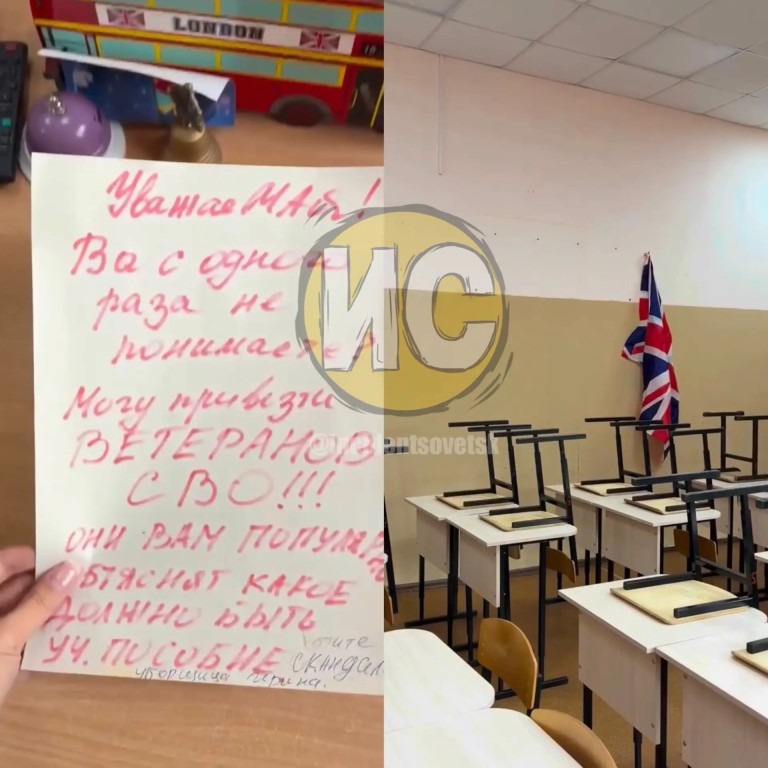 LONDON
УважаеМАя!
Ва с одного
раза не
понимаете?
Могу привезти
ВЕТЕРАНОВ
СВО!!!
ОНИ ВАМ
ОБТЯСНЯТ КАКОЕ
ДОЛЖНО БЫТЬ
УЧ. ПОСОБИЕ
СКАНДАЛ
уборщица
ИС